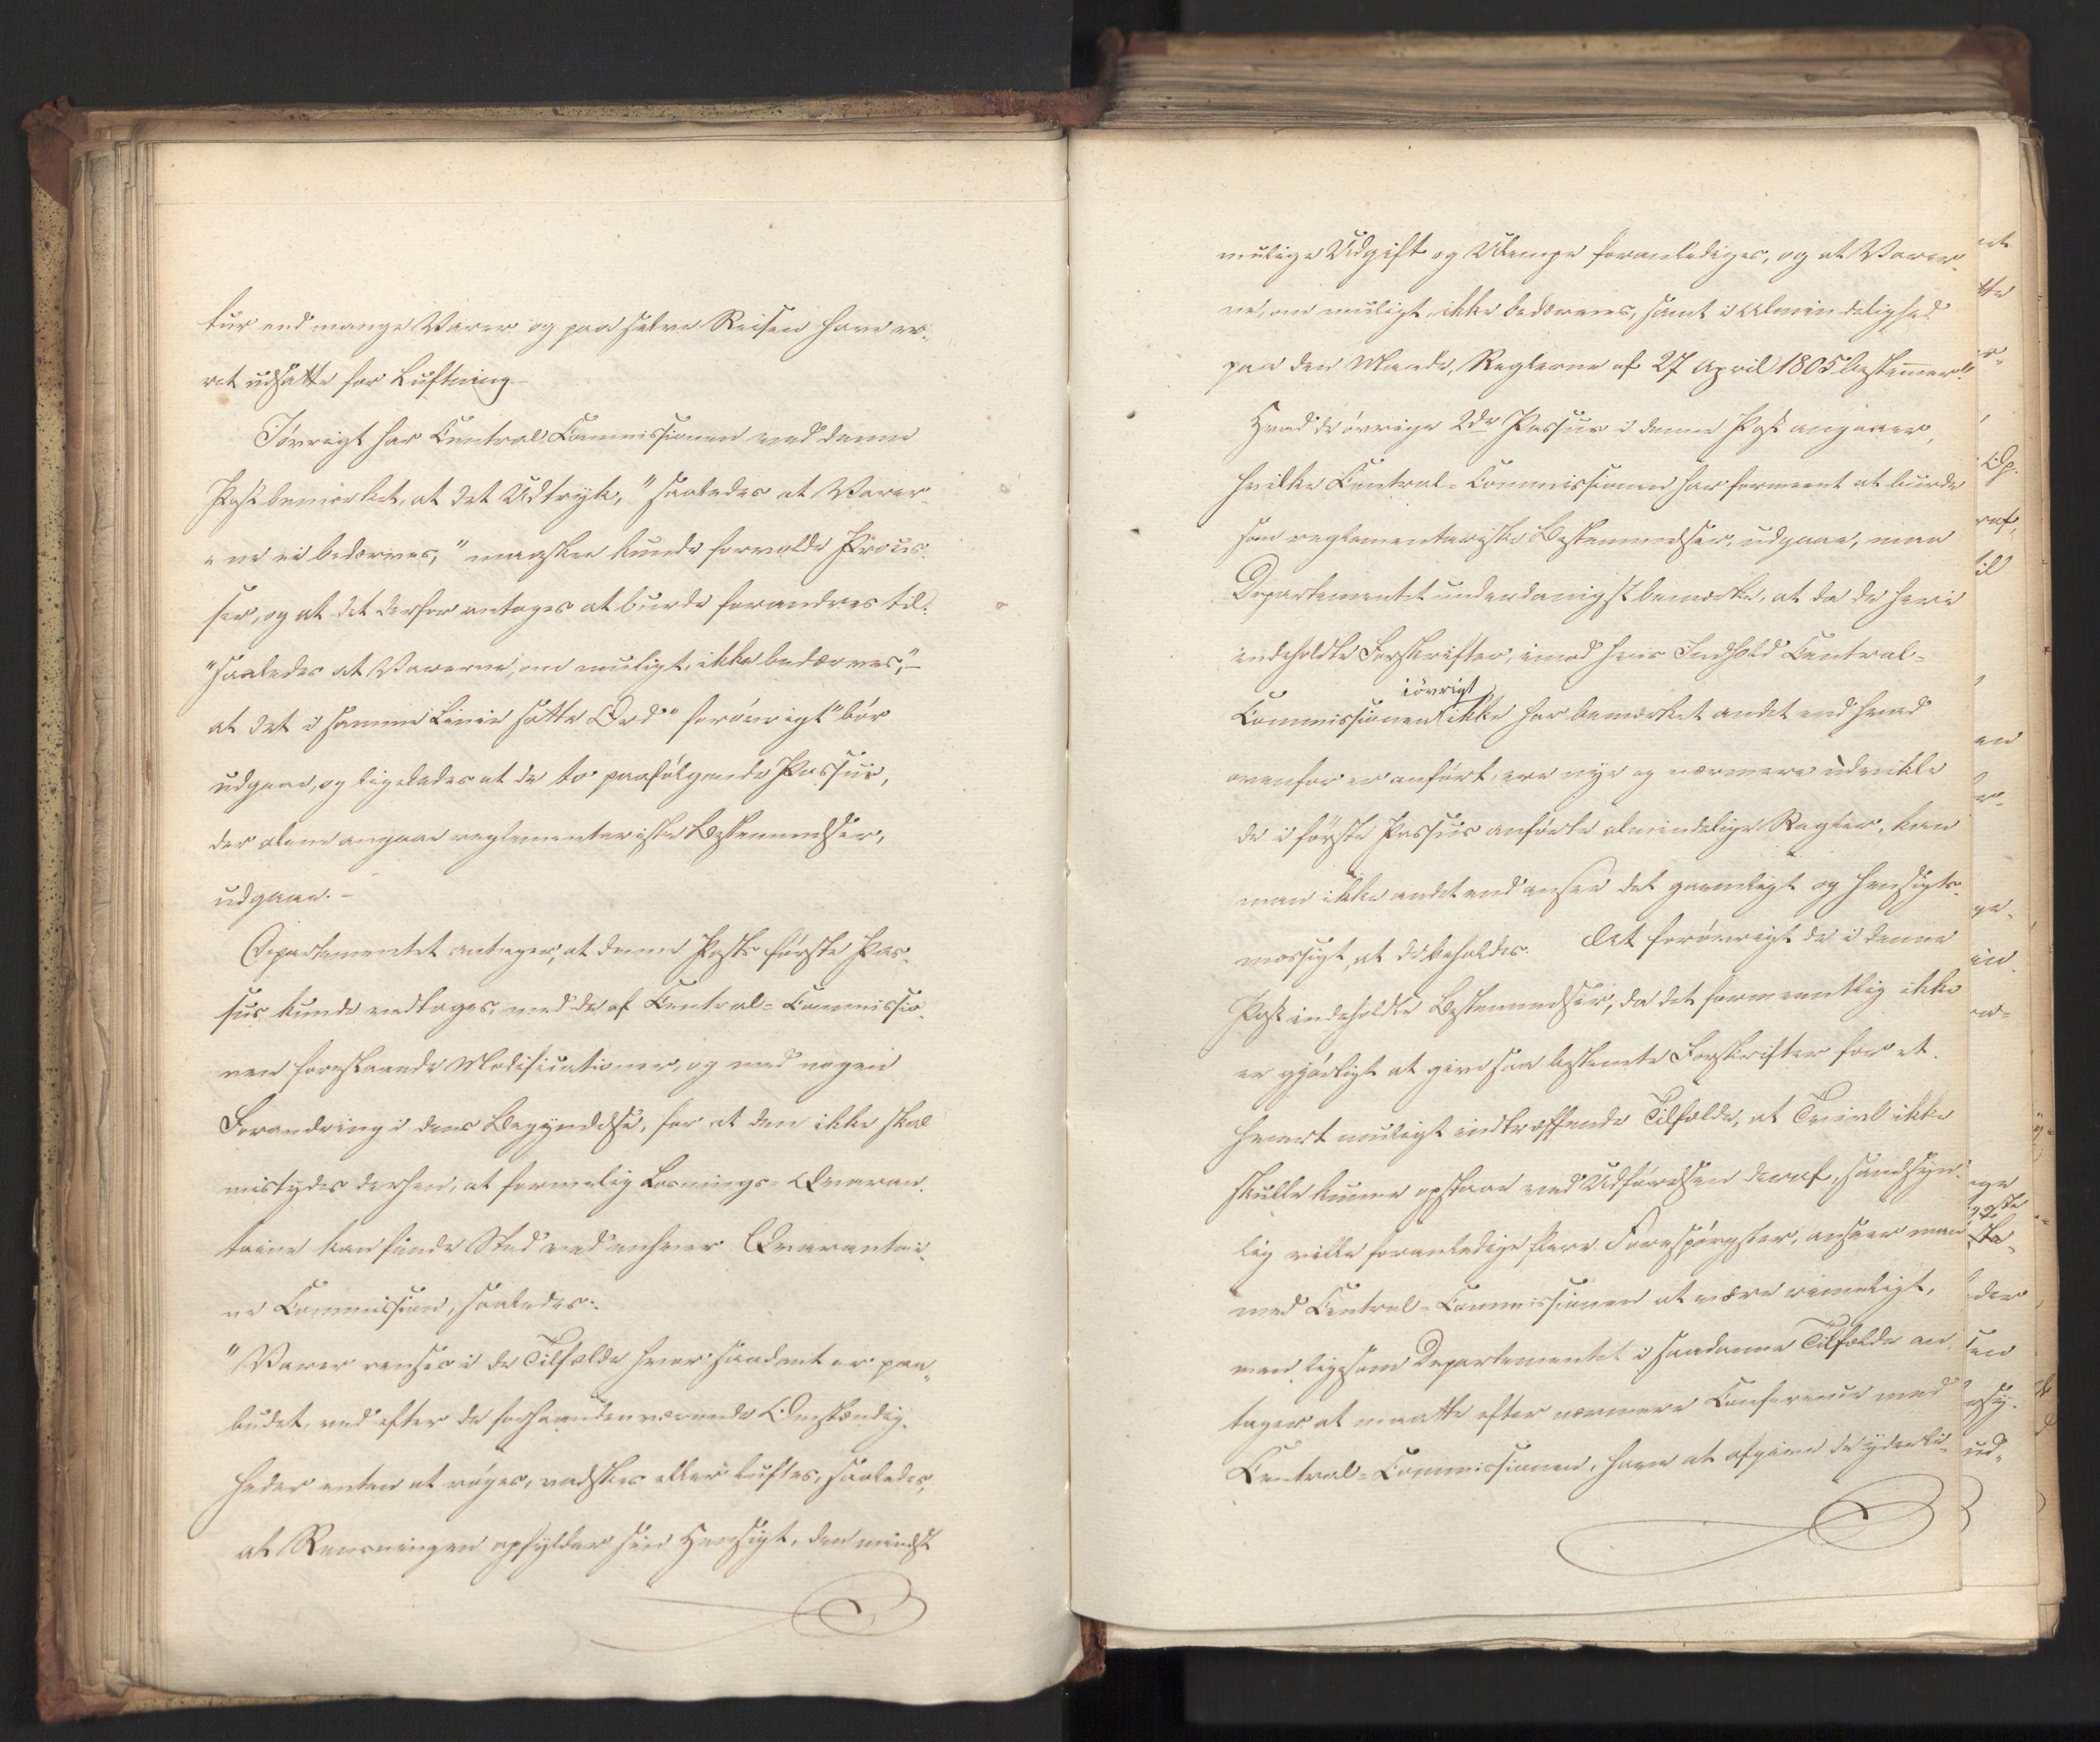 tur end mange Varer og paa selve Reisen have væ-
ret udsatte for Luftning.-
Iøvrigt har Central Commissionen ved denne
Post bemærket, at det Udtryk, "saaledes at Varer-
"ne ei bedærves," maaskee kunde forvolde Proces-
ser, og at det derfor antages at burde forandres til:
"saaledes at Varerne, om muligt, ikke bedærves,"-
at det i samme Linie satte Ord "forøvrigt" bør
udgaae, og ligeledes at de to paafølgende Passus,
der alene angaae reglementariske Bestemmelser,
udgaae.-
Departementet antager, at denne Posts første Pas-
sus kunde vedtages, med de af Central-Commissio-
nen foreslaaede Modificationer, og med nogen
Forandring i dens Begyndelse, for at den ikke skal
mistydes derhen, at formelig Losnings-Qvaran-
taine kan finde Sted ved enhver Qvarantai-
ne Commission, saaledes:
"Varer renses i de Tilfælde hvor saadant er paa-
budet, ved efter de forhaandenværende Omstændig-
heder enten at røges, vadskes eller luftes, saaledes,
at Rensningen opfylder sin Hensigt, den mindst
mulige Udgift og Ulempe foranlediges, og at Varer-
ne, om muligt, ikke bedærves, samt i Almindelighed
paa den Maade, Reglerne af 27 April 1805 bestemmer."
Hvad de øvrige 2de Passus i denne Post angaaer,
hvilke Central-Commissionen har formeent at burde
som reglementariske Bestemmelser, udgaae, maa
Departementet underdanigst bemærke, at da de heri
indeholdte Forskrifter, imod hvis Indhold Central-
iøvrigt
Commissionen ikke har bemærket andet end hvad
ovenfor er anført, ere nye og nærmere udvikle
de i første Passus anførte almindelige Regler, kan
man ikke andet end ansee det gavnligt og hensigts-
mæssigt, at de beholdes. At forøvrigt de i denne
Post indeholdte Bestemmelser, da det formeentlig ikke
er gjørligt at give saa bestemte Forskrifter for et-
hvert muligt indtræffende Tilfælde, at Tvivl ikke
skulle kunne opstaae ved Udførelsen deraf, sandsyn-
lig ville foranledige flere Forespørgsler, ansees man
med Central-Commissionen at være rimeligt,
men ligesom Departementet i saadanne Tilfælde an-
tager at maatte efter nærmere Conference med
Central-Commissionen, have at afgive de yderli-